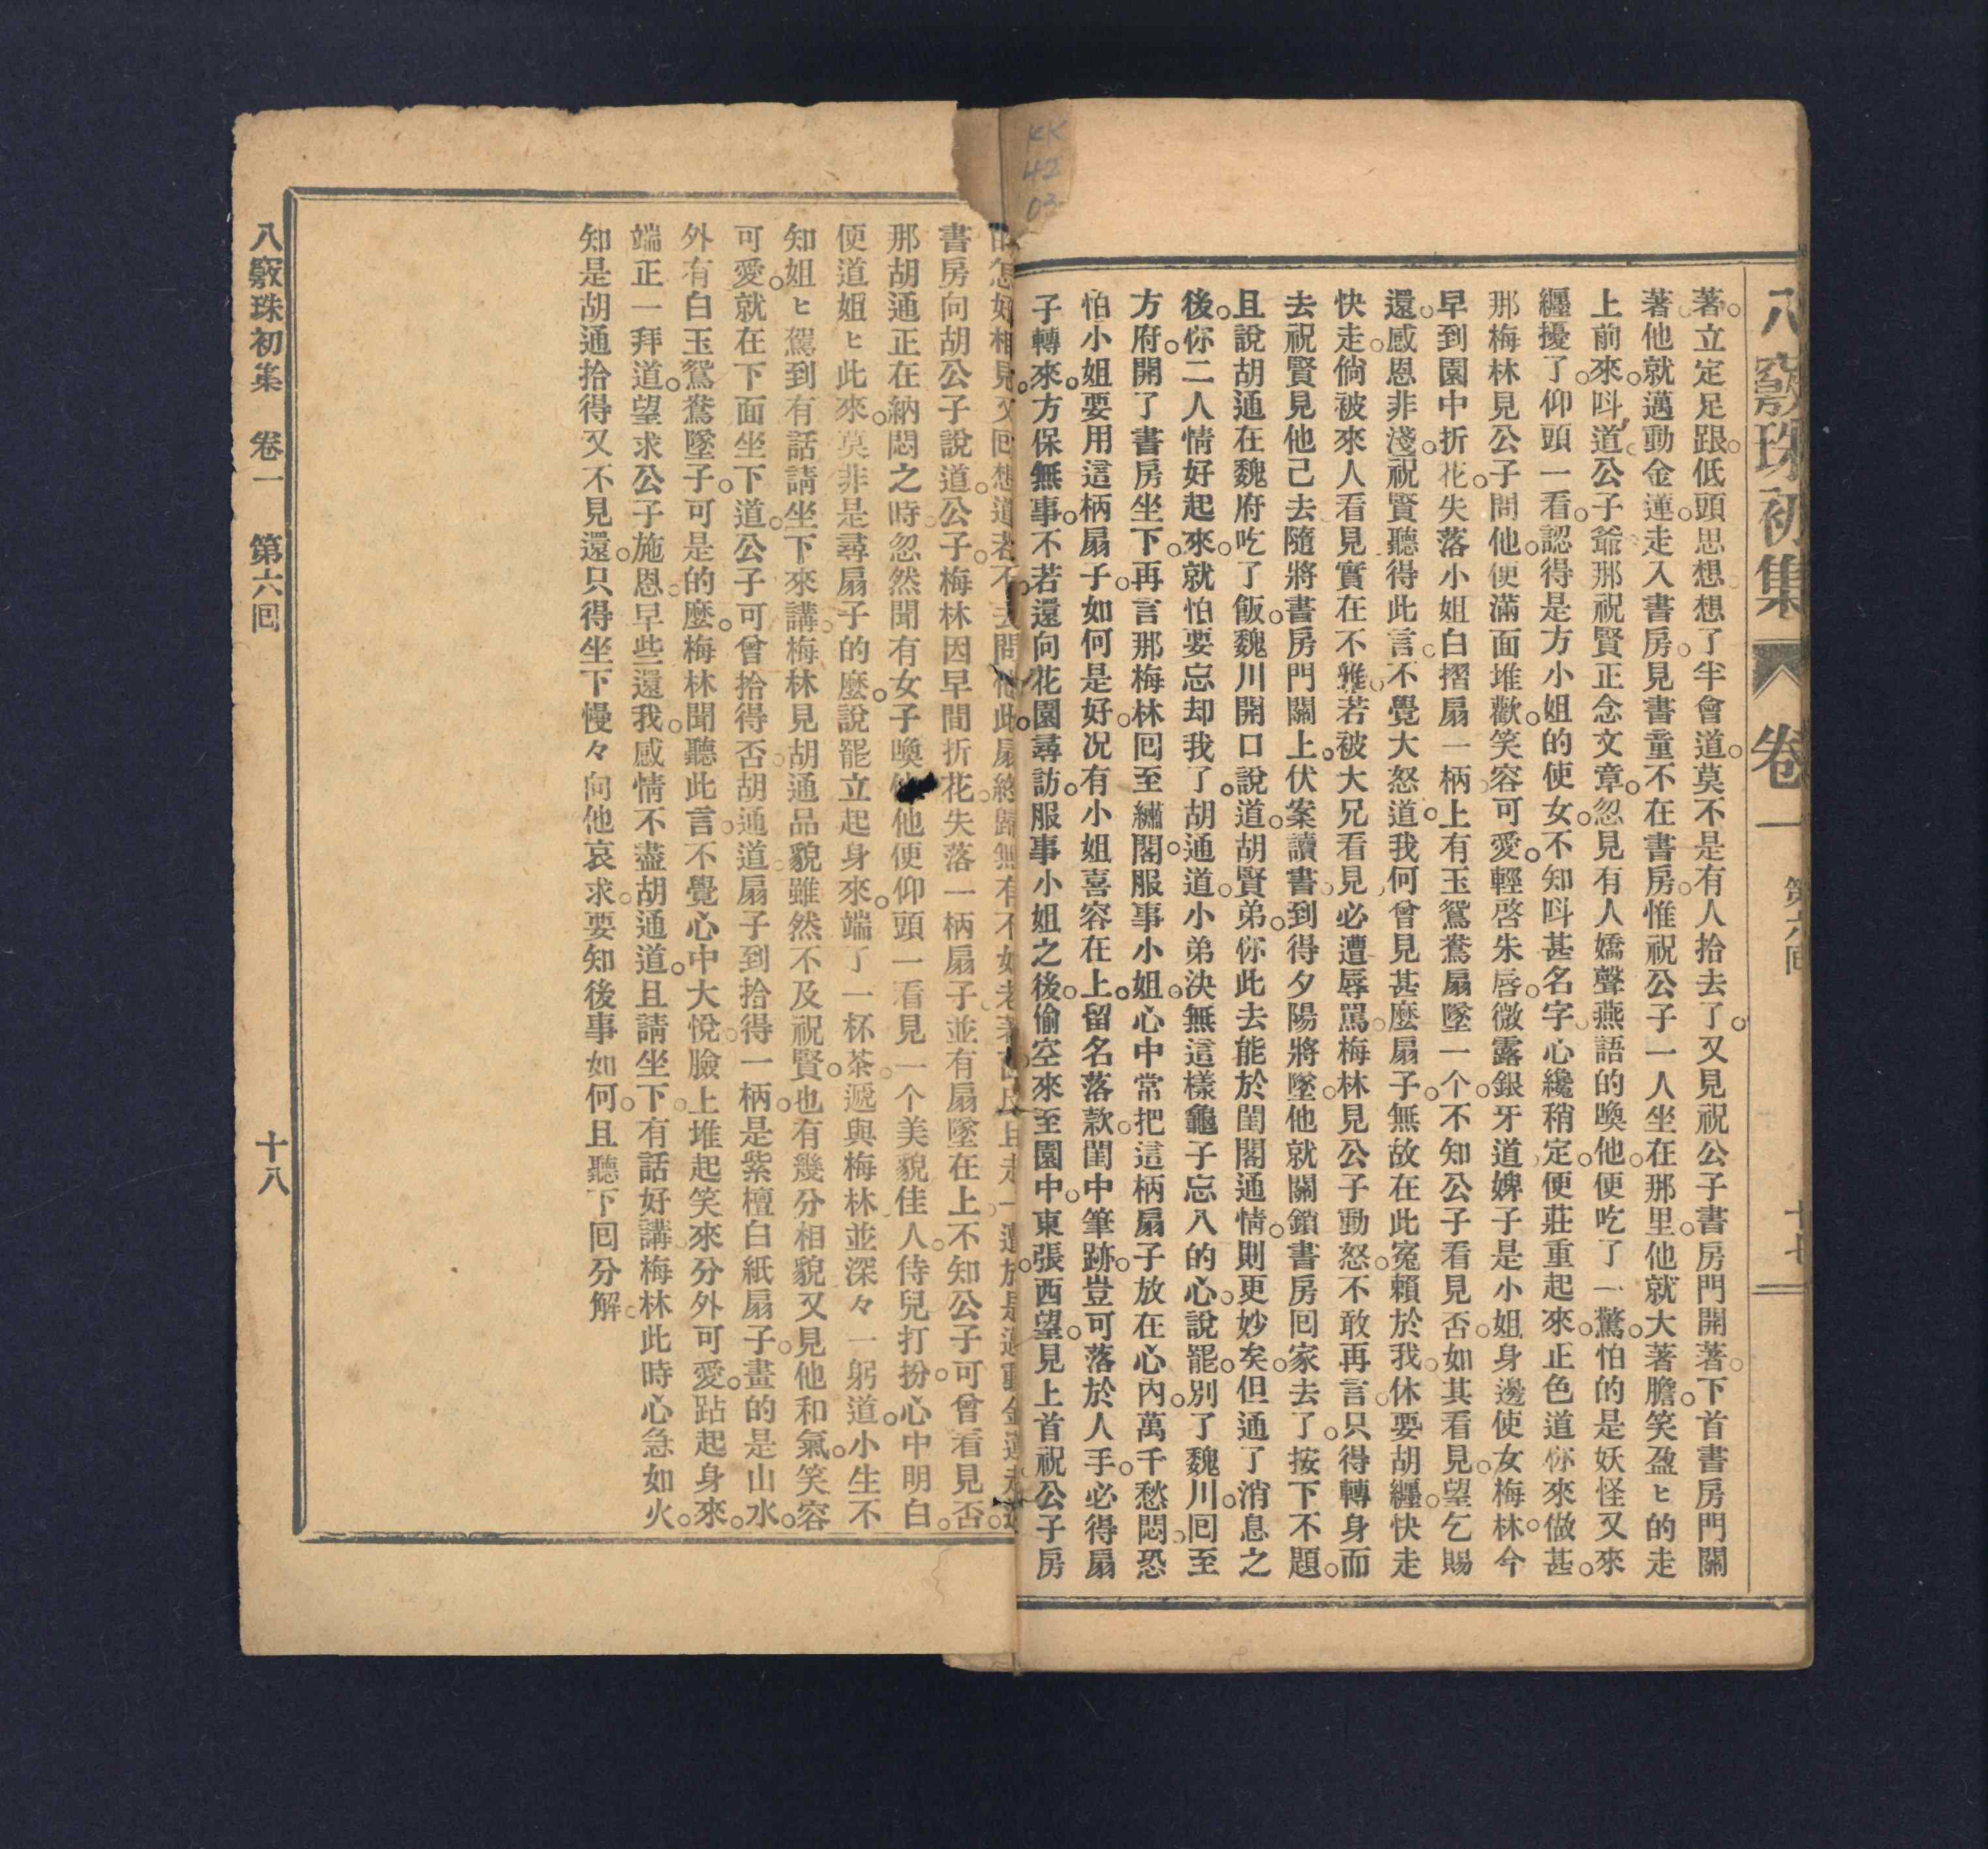 八竅珠初集 卷一 第六囘 十七
著。立定足跟。低頭思想想了半會道。莫不是有人拾去了。又見祝公子書房門開著。下首書房門關
著他就邁動金蓮走入書房。見書童不在書房。惟祝公子一人坐在那里。他就大著膽。笑盈ヒ的走
上前來。呌道公子爺那祝賢正念文章。忽見有人嬌聲燕語的喚他。便吃了一驚。怕的是妖怪又來
纏擾了。仰頭一看。認得是方小姐的使女。不知呌甚名字。心纔稍定。便莊重起來。正色道你來做甚。
那梅林見公子問他。便滿面堆歡。笑容可愛。輕啓朱唇。微露銀牙道婢子是小姐身邊使女梅林。今
早到園中折花。失落小姐白摺扇一柄。上有玉鴛鴦扇墜一个。不知公子看見否。如其看見。望乞賜
還。感恩非淺。祝賢聽得此言。不覺大怒道。我何曾見甚麼扇子。無故在此。寃賴於我。休要胡纏。快走
快走。倘被來人看見。實在不雅。若被大兄看見。必遭辱罵。梅林見公子動怒。不敢再言。只得轉身而
去祝賢見他己去隨將書房門關上。伏案讀書。到得夕陽將墜。他就關鎖書房囘家去了。按下不題。
且說胡通在魏府吃了飯。魏川開口說道。胡賢弟。你此去能於閨閣通情。則更妙矣。但通了消息之
後。你二人情好起來。就怕要忘却我了。胡通道。小弟決無這樣龜子忘八的心。說罷。別了魏川。囘至
方府。開了書房坐下。再言那梅林囘至繡閣。服事小姐。心中常把這柄扇子放在心內。萬千愁悶。恐
怕小姐要用這柄扇子。如何是好。况有小姐喜容在上。留名落款。閨中筆跡。豈可落於人手。必得扇
子轉來。方保無事。不若還向花園尋訪。服事小姐之後。偷空來至園中。東張西望。見上首祝公子房
怎好相見。又囘想道。若不去問他此扇終歸無有不如老著面皮上走一遭於是邁動金蓮走進
書房向胡公子說道。公子。梅林因早間折花。失落一柄扇子。並有扇墜在上。不知公子可曾看見否。
那胡通正在納悶之時。忽然聞有女子喚他他便仰頭一看見一个美貌佳人。侍兒打扮。心中明白。
便道姐ヒ此來。莫非是尋扇子的麼。說罷立起身來。端了一杯茶。遞與梅林並深々一躬道。小生不
知姐ヒ駕到有話請坐下來講。梅林見胡通品貌雖然不及祝賢。也有幾分相貌又見他和氣。笑容
可愛。就在下面坐下道。公子可曾拾得否。胡通道扇子到拾得一柄。是紫檀白紙扇子。畫的是山水。
外有白玉鴛鴦墜子。可是的麼。梅林聞聽此言。不覺心中大悅。臉上堆起笑來。分外可愛。跕起身來。
端正一拜道。望求公子施恩。早些還我。感情不盡胡通道。且請坐下。有話好講。梅林此時心急如火。
知是胡通拾得又不見還。只得坐下慢々向他哀求。要知後事如何。且聽下囘分解。
八竅珠初集 卷一 第六囘 十八
KK
42
03